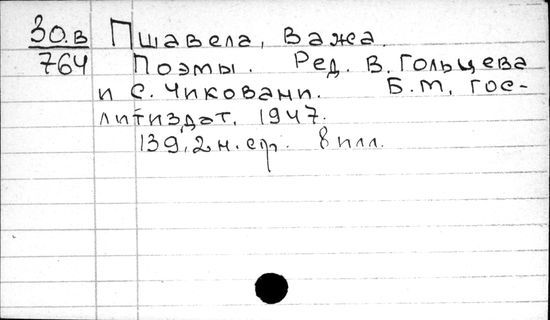 30.в Пшавела, Важа.
764 Поэмы. Ред. В. Гольцева
и С. Чиковани. Б.М, Гос-
литиздат, 1947.
139, 2 н. стр. 8 илл.